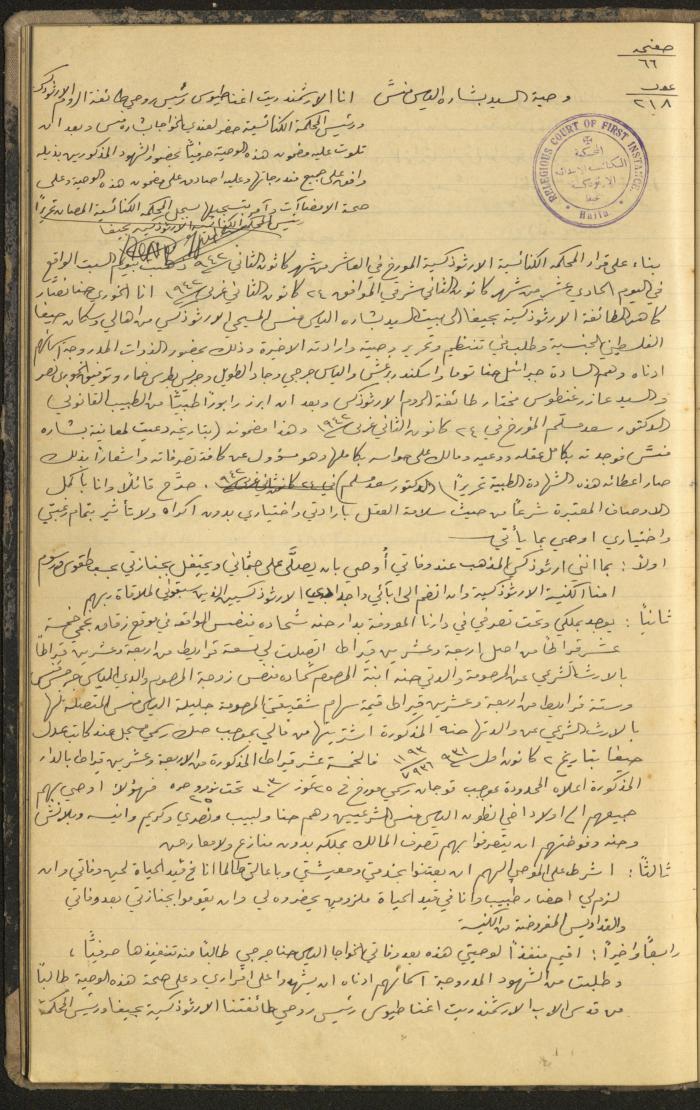 صفحة
٦٦
عدد
٢١٨
وصية السيد بشاره الياس منسّى
انا الارشمندريت اغناطيوس رئيس روحي طائفة الروم الارثوذكس
ورئيس المحكمة الكنائسية حضر لعندي الخواجا بشاره منسى وبعد ان
تلوت عليه مضمون هذه الوصية حرفياً بحضور الشهود المذكورين بذيله
وافق على جميع مندرجاتها وعليه اصادق على مضمون هذه الوصية وعلى
صحة الامضاآت وآمر بتسجيلها بسجل المحكمة الكنائسية المصان تحريراً
رئيس المحكمة الكنائسية الارثوذكسية بحيفا
RELIGIOUS COURT OF FIRST INSTANCE
المحكمة
الكنائسية الابتدائية
الارثوذكسية
حيفا
Haifa
بناء على قرار المحكمة الكنائسية الارثوذكسية المؤرخ في العاشر من شهر كانون الثاني سنة ٩٤٢ ذهبت بيوم السبت الواقع
في اليوم الحادي عشر من شهر كانون الثاني شرقي الموافق ٢٤ كانون الثاني غربي سنة ١٩٤٢ انا الخوري حنا نصار
كاهن الطائفة الارثوذكسية بحيفا الى بيت السيد بشاره الياس منسى المسيحي الارثوذكسي من اهالي وسكان حيفا
الفلسطيني الجنسية وطلب مني تنظيم وتحرير وصيته وارادته الاخيرة وذلك بحضور الذوات المدروجة اسمائهم
ادناه وهم السادة جبرائيل حنا توما واسكندر برغش والياس جرجي وجاد الطويل وجريس بطرس خمار وتوفيق الخوري نصر
والسيد عازر غنطوس مختار طائفة الروم الارثوذكس وبعد ان ابرز رابوراً طبياً من الطبيب القانوني
الدكتور سعد مسلم المؤرخ في ٢٤ كانون الثاني غربي سنة ١٩٤٢ وهذا مضمونه (بتاريخه دعيت لمعاينة بشاره
منسّى فوجدته بكامل عقله ووعيه ومالك على حواسه بكاملها وهو مسؤول عن كافة تصرفاته واشعاراً بذلك
صار اعطائه هذه الشهادة الطبية تحريراً) الدكتور سعد مسلم في ٢٤ كانون ثاني غربي سنة ٩٤٢ . صرّح قائلاً وانا بأكمل
الاوصاف المعتبرة شرعاً من حيث سلامة العقل بارادتي واختياري بدون اكراه ولا تأثير بتمام رغبتي
واختياري اوصي بما يأتي
اولاً : بما انني ارثوذكسي المذهب عند وفاتي أُوصي بان يصلَّى على جثماني ويحتفل بجنازتي بحسب طقوس ورسوم
امنا الكنيسة الارثوذكسية وان انضم الى ابآئي واجدادي الارثوذكسيين الذين سبقوني لملاقاة ربهم
ثانياً : يوجد بملكي وتحت تصرفي في دارنا المعروفة بدار حنه شحاده منسى الواقعه في موقع زقاق يحيى خمسة
عشر قيراطاً من اصل اربعة وعشرين قيراطا اتصلت لي تسعة قراريط من اربعة وعشرين قيراطاً
بالارث الشرعي عن المرحومة والدتي حنة ابنة المرحوم شحاده منسى زوجة المرحوم والدي الياس جرجس منسى
وستة قراريط من اربعة وعشرين قيراط قيمة سهام شقيقتي المرحومة جليلة الياس منسى المتصلة لها
بالارث الشرعي عن والدتها حنه المذكورة اشتريتها من مالي بموجب صك رسمي مسجل عند كاتب عدل
حيفا بتاريخ ٢ كانون اول سنة ٩٣٦ ١١٩٣/٧٩٣٦ فالخمسة عشر قيراطا المذكورة من الاربعة وعشرين قيراطا بالدار
المذكورة اعلاه المحدودة بموجب قوجان رسمي مؤرخ في ٢٥ تموز سنة تحت نومرو فهؤلاء اوصي بهم
جميعهم الى اولاد اخي انطون الياس منسى الشرعيين وهم حنا ولبيب و وكريم وانيسه وبلانش
وحنه وفوضتهم ان يتصرفوا بهم تصرف المالك بملكه بدون منازع ولا معارض
ثالثاً : اشرط على الموصى اليهم ان يعتنوا بخدمتي ومعيشتي وباعالتي طالما انا في قيد الحياة لحين وفاتي وان
لزم لي احضار طبيب وانا في قيد الحياة ملزومين يحضروه لي وان يقوموا بجنازتي بعد وفاتي
والقداديس المفروضة من الكنيسة
رابعاً واخيراً : اقيم منفذاً لوصيتي هذه بعد وفاتي الخواجا الياس حنا جرجي طالباً منه تنفيذها حرفياً ،
وطلبت من الشهود المدروجة اسمائهم ادناه ان يشهدوا على اقراري وعلى صحة هذه الوصية طالباً
من قدس الاب الارشمندريت اغناطيوس رئيس روحي طائفتنا الارثوذكسية بحيفا ورئيس المحكمة